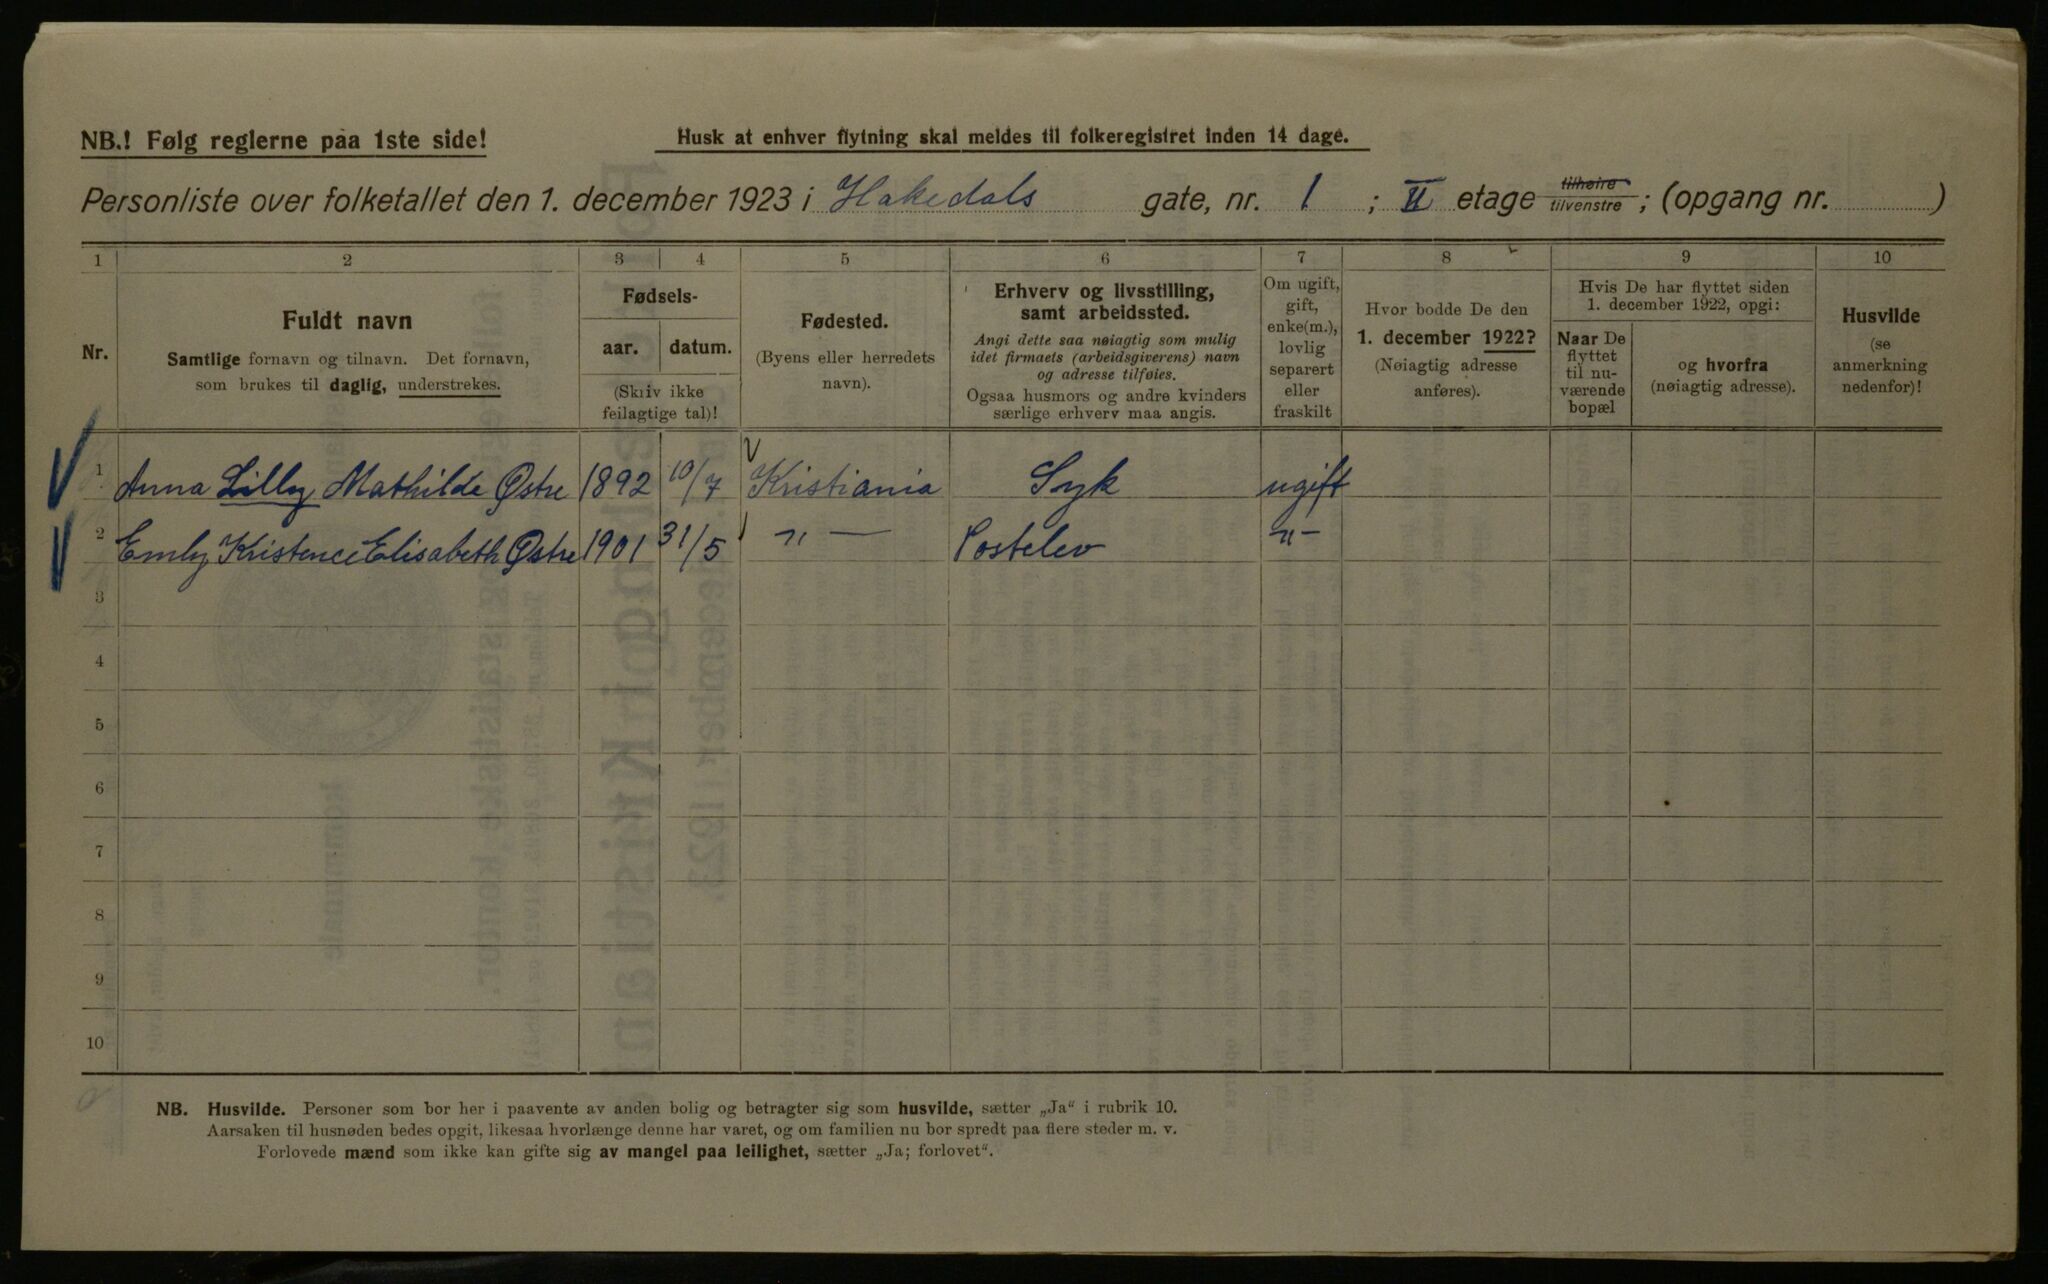 NB.! Følg reglerne paa 1ste side!
Husk at enhver flytning skal meldes til folkeregistret inden 14 dage.
Personliste over folketallet den 1. december 1923 i Hakedals gate, nr. 1 ; II etage tilhøire tilvenstre ; (opgang nr. )
1 2 3 4 5 6 7 8 9 10
Nr.
Fuldt navn
Samtlige fornavn og tilnavn. Det fornavn,
som brukes til daglig, understrekes.
Fødsels-
aar. datum.
(Skriv ikke
feilagtige tal)!
Fødested.
(Byens eller herredets
navn).
Erhverv og livsstilling,
samt arbeidssted.
Angi dette saa nøiagtig som mulig
idet firmaets (arbeidsgiverens) navn
og adresse tilføies.
Ogsaa husmors og andre kvinders
særlige erhverv maa angis.
Om ugift,
gift,
enke(m.),
lovlig
separert
eller
fraskilt
Hvor bodde De den
1. december 1922?
(Nøiagtig adresse
anføres).
Hvis De har flyttet siden
1. december 1922, opgi:
Naar De
flyttet
til nu-
værende
bopæl
og hvorfra
(nøiagtig adresse).
Husvilde
(se
anmerkning
nedenfor)!
1 Anna Lilly Mathilde Østre 1892 10/7 Kristiania Syk ugift
2 Emly Kristence Elisabeth Østre 1901 31/5 " — Postelev " –
3
4
5
6
7
8
9
10
NB. Husvilde. Personer som bor her i paavente av anden bolig og betragter sig som husvilde, sætter „Ja" i rubrik 10.
Aarsaken til husnøden bedes opgit, likesaa hvorlænge denne har varet, og om familien nu bor spredt paa flere steder m. v.
Forlovede mænd som ikke kan gifte sig av mangel paa leilighet, sætter „Ja; forlovet".